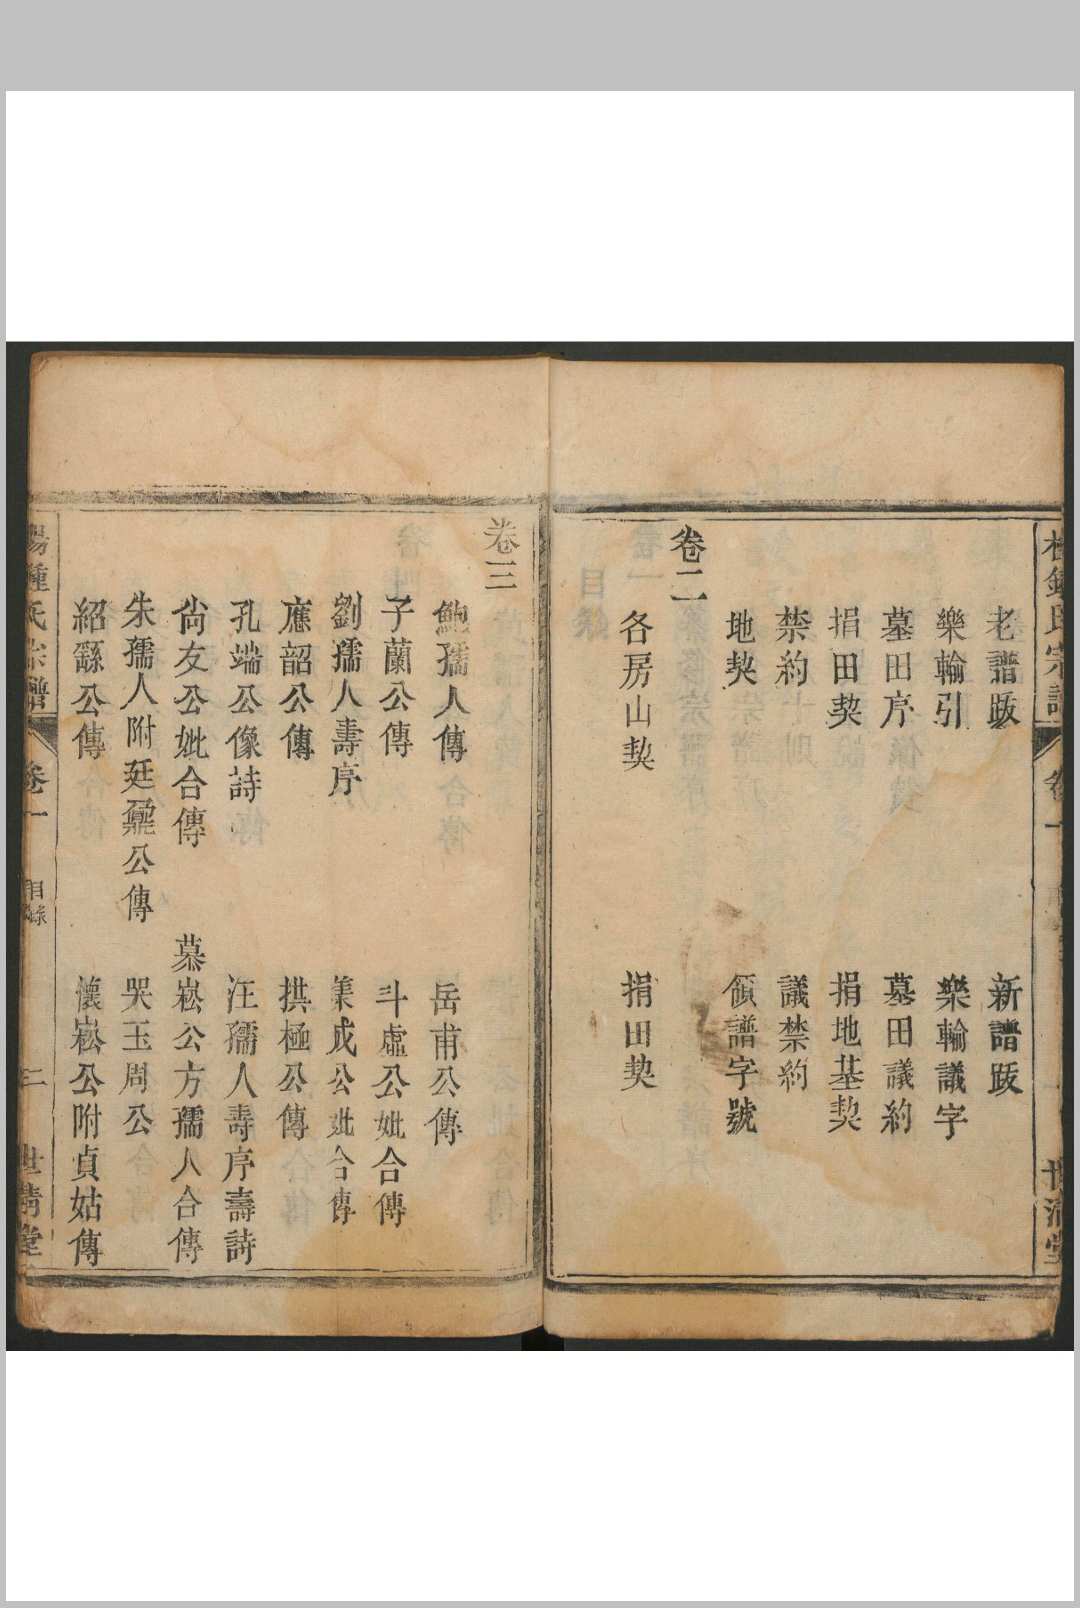 老譜跋
新譜跋
樂輸引
樂輸議字
墓田序
墓田議約
捐田契
捐地基契
禁約
議禁約
地契
領譜字號
卷二
各房山契
捐田契
卷三
鮑孺人傳
岳甫公傳
子蘭公傳
斗虛公妣合傳
劉孺人壽序
集成公妣合傳
應韶公傳
拱極公傳
孔端公像詩
汪孺人壽序壽詩
尙友公妣合傳
慕崧公方孺人合傳
朱孺人附廷鼐公傳
哭玉周公
紹繇公傳
懷崧公附貞姑傳
鍾氏宗譜
卷一
目錄
二
世淸堂